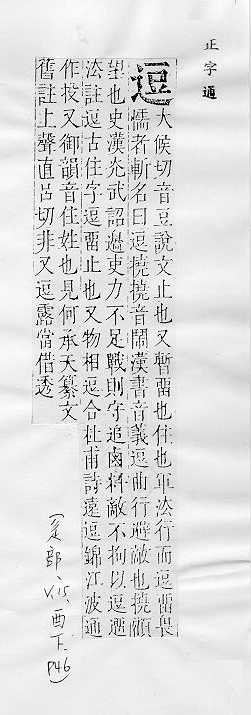 正字通
逗 大候切音豆說文止也又暫畱也住也軍法行而逗畱畏
懦者斬名曰逗撓撓音鬧漢書音義逗曲行避敵也撓顧
望也史漢光武詔邊吏力不足戰則守追鹵料敵不拘以逗遛
法註逗古住字逗畱止也又物相逗合杜甫詩遠逗錦江波通
作投又御韻音住姓也見何承天纂文
舊註上聲直呂切非又逗露當借透
(辵部、V.15, 酉下. P46)